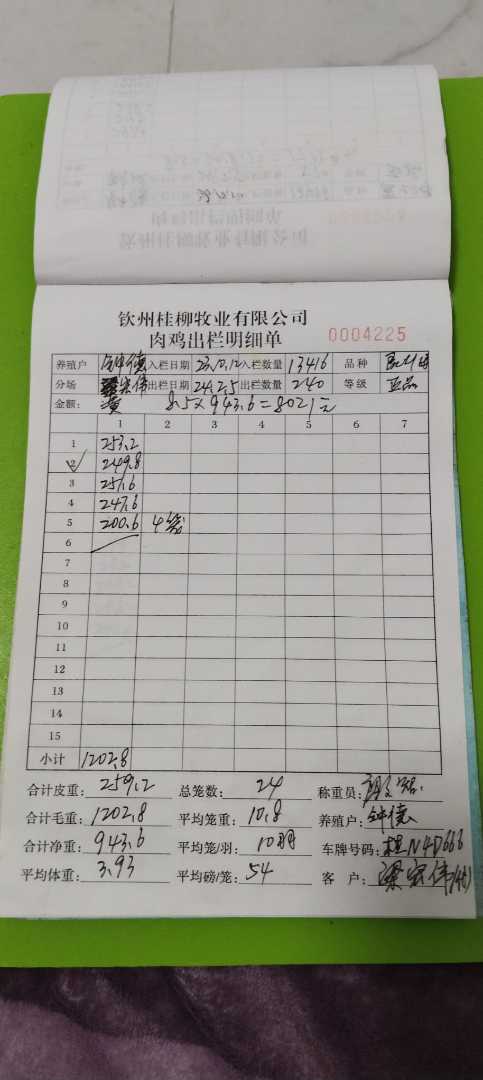 钦州桂柳牧业有限公司
肉鸡出栏明细单 0004225
养殖户 钟德 入栏日期 23.10.12 入栏数量 13416 品种
分场 宏伟 出栏日期 24.2.5 出栏数量 240 等级 正品
金额: 8.5×943.6=8021元
1 2 3 4 5 6 7
1 253.2
2 249.8
3 251.6
4 247.6
5 200.6 4笼
6
7
8
9
10
11
12
13
14
15
小计 1202.8
合计皮重: 259.2 总笼数: 24 称重员:
合计毛重: 1202.8 平均笼重: 10.8 养殖户: 钟德
合计净重: 943.6 平均笼/羽: 10羽 车牌号码: 桂N4D666
平均体重: 3.93 平均磅/笼: 54 客户: 梁宏伟